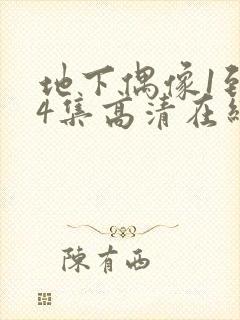 地下偶像1到
4集高清在线
陳有西